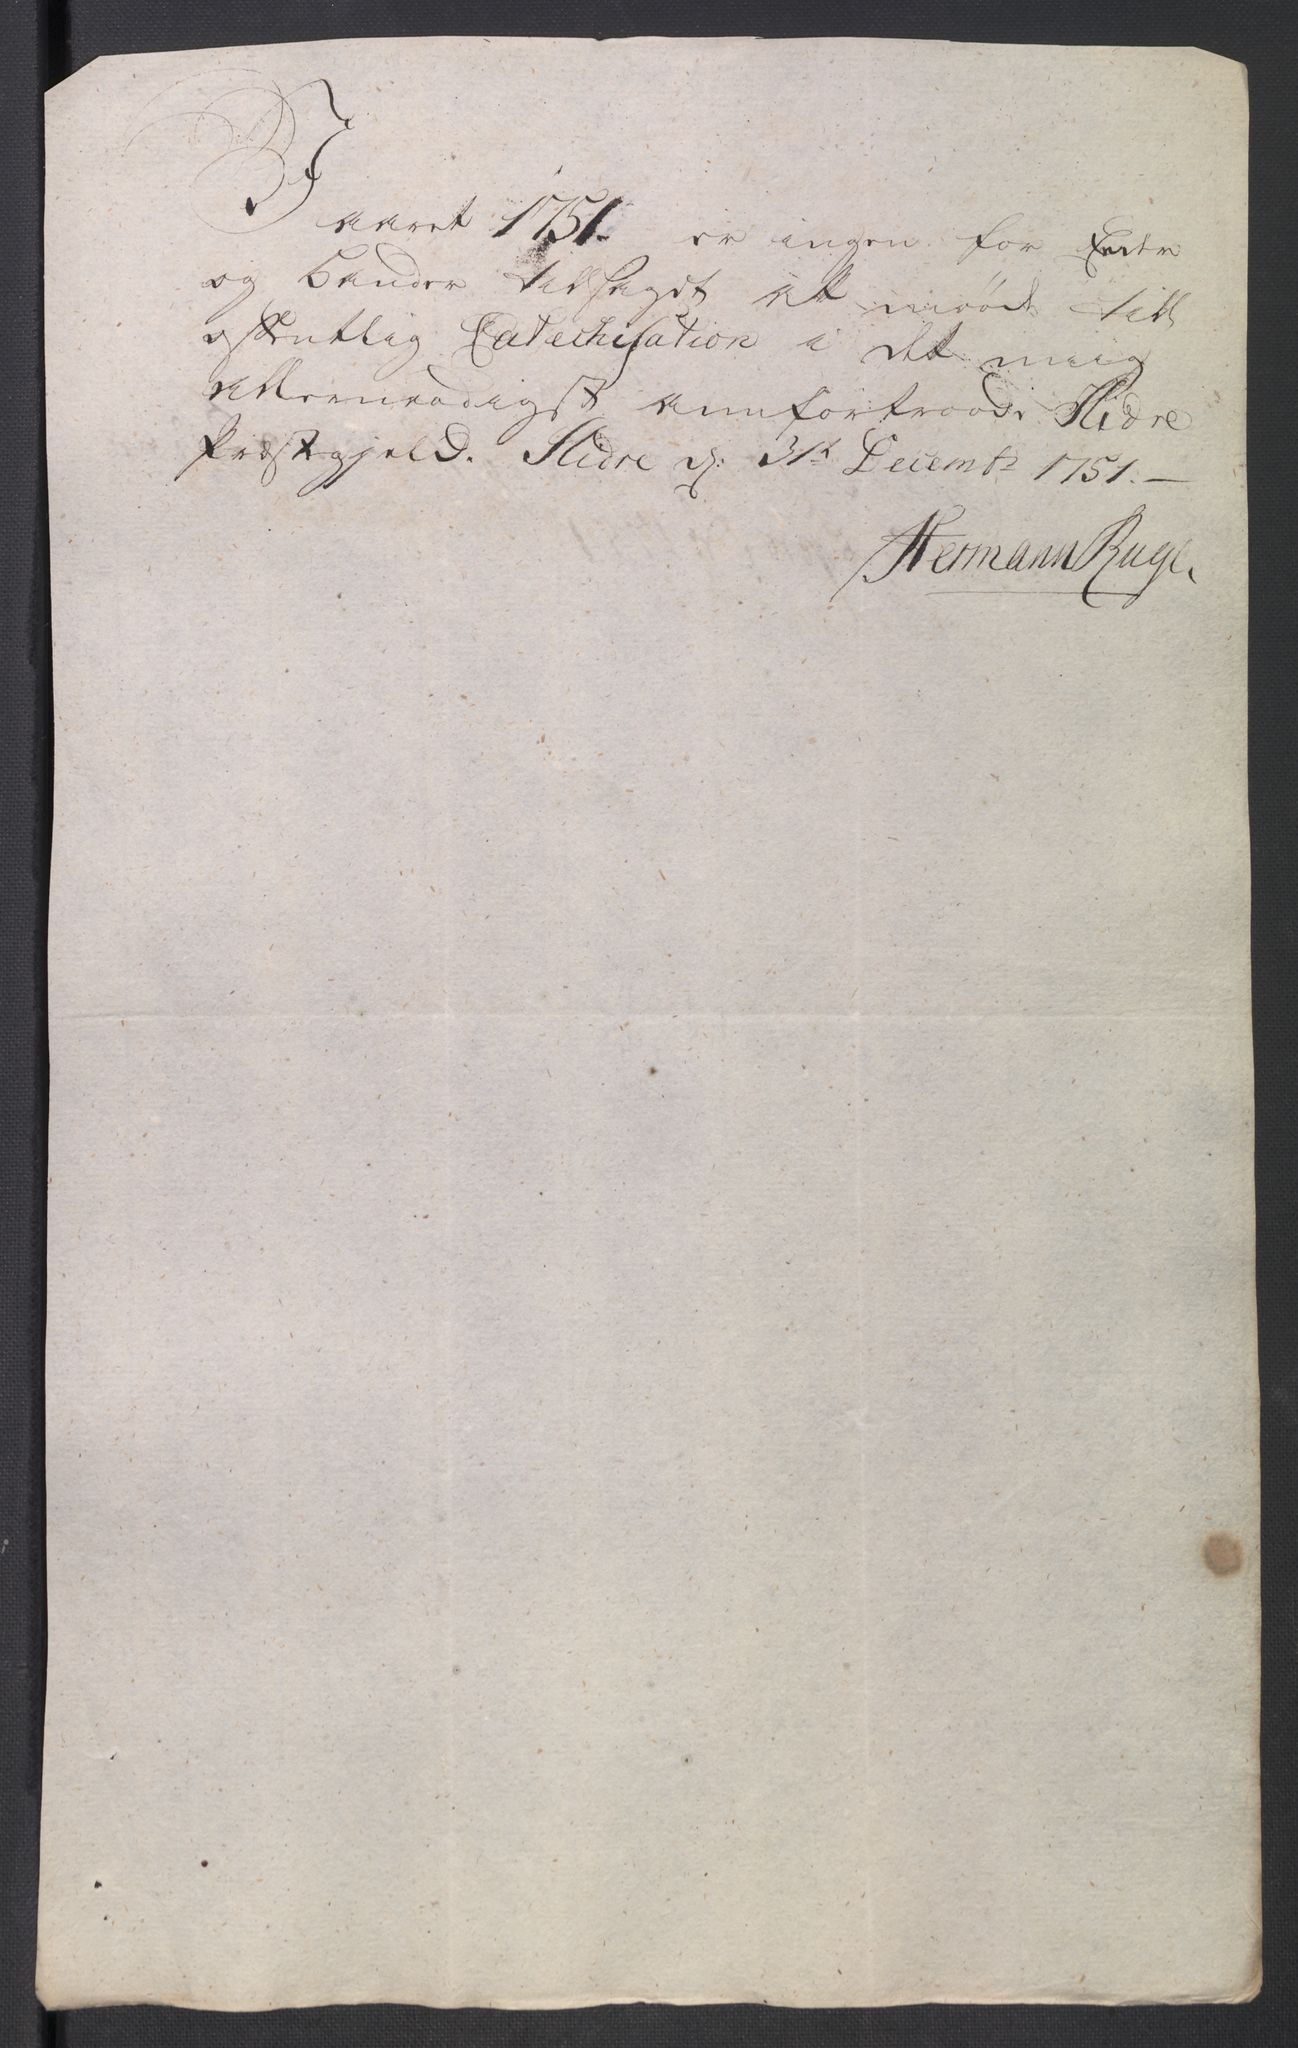 I
aaret 1751. er ingen for
og Bander tilsagdt at møde till
offentlig Catechisation i det mig
allernaadigst annfortroede Slidre
Præstegjeld. Slidre d: 31te Decembr 1751. —
Hermann Ruge.